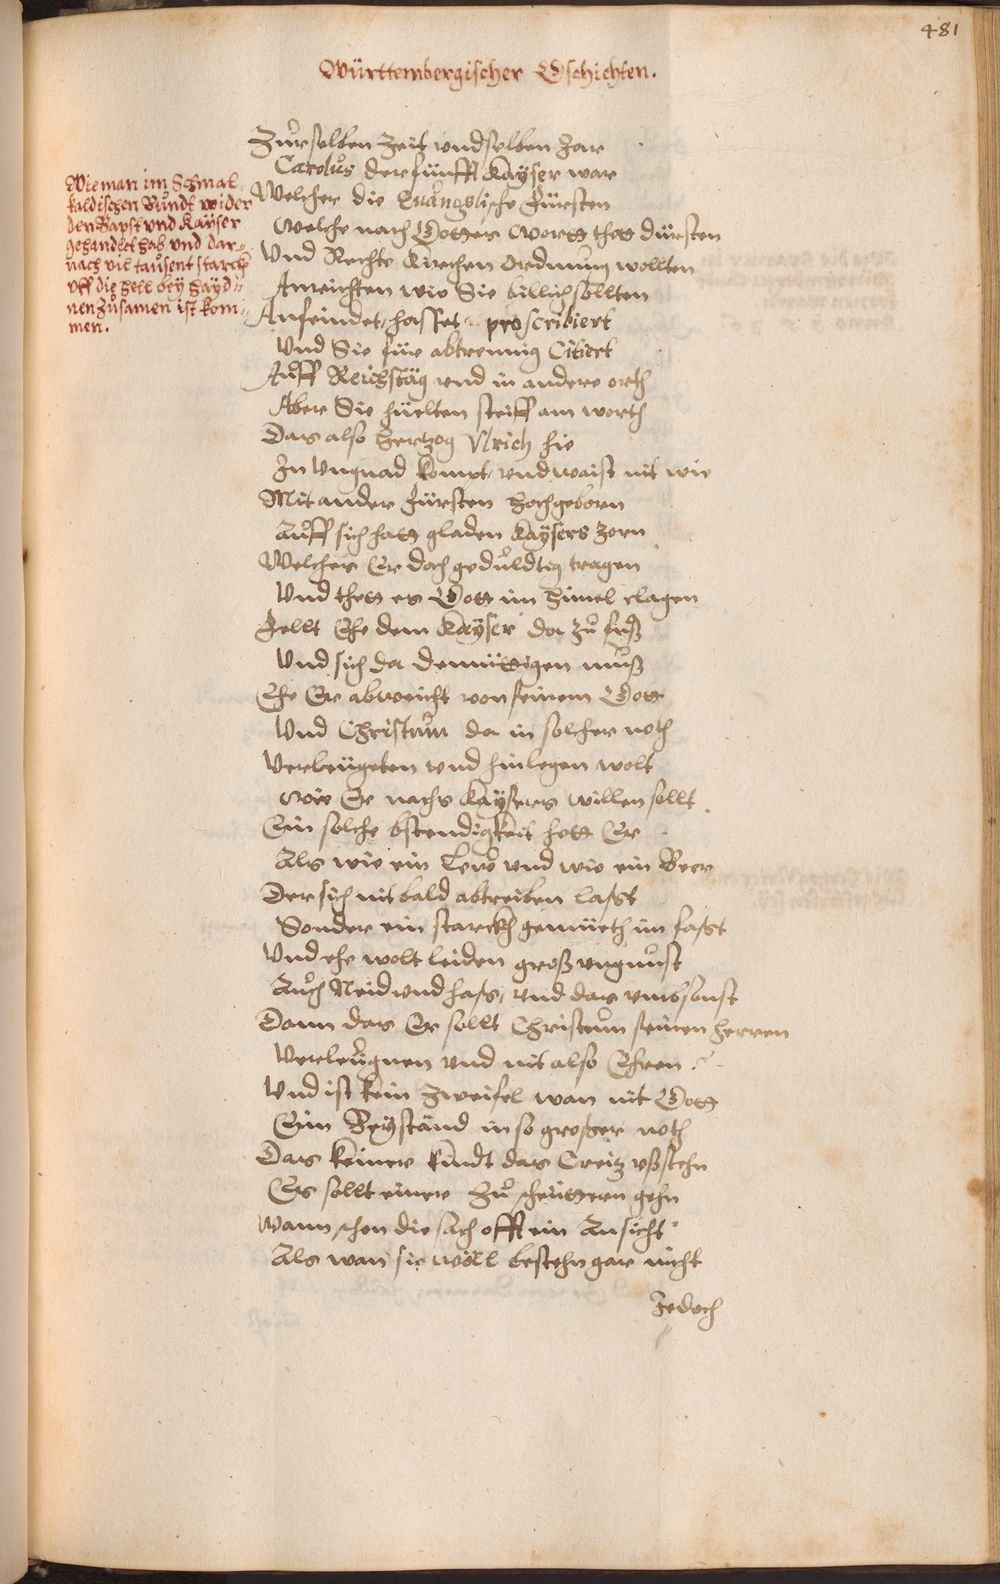 481
Württembergischer Gschichten.
Wie man im Schmal-
kaldischen Bundt wider
den Bapst und Kayser
gehandlet hab und dar-
nach vil tausent starckh
uff die Hell bey Hayd-
nen zusamen ist kom-
men.
Zur selben Zeit und selben Jar
Carolus der fünfft Kayser war
Welcher die Evangelische Fürsten
Welche nach Gottes Wortt thett dürsten
Und Rechte Kirchen Ordnung wollten
Anrichten wie Sie billich sollten
Anfeindet, hasset, proscribiert
Und Sie für abtrennig Citiert
Auff Reichstäg und in andere orth
Aber Sie hüelten steiff am worth
Das also Hertzog Ulrich hie
In Ungnad kompt, und waist nit wie
Mit ander Fürsten Hochgeborn
Auff sich hatt gladen Kaysers Zorn
Welchen Er doch geduldtig tragen
Und thett es Gott im Himel clagen
Fellt Ehe dem Kayser da zu fuß
Und sich da demüttigen muß
Ehe Er abweicht von seinem Gott
Und Christum da in solcher noth
Verleugeten und hinlegen wolt
Wie Er nachs Kaysers willen sollt
Ein solche bstendigkeit hett Er
Als wie ein Lew und wie ein Beer
Der sich nit bald abtreiben lasst
Sonder ein starckh gemüeth im fasst
Und ehe wolt leiden groß ungunst
Auch Neid und hass, und das umbsonst
Dann das Er sollt Christum seinen Herren
Verleugnen und nit also Ehren
Und ist kein Zweifel wan nit Gott
Eim Beyständ in so grosser noth
Das keiner kundt das Creitz ußstehn
Es sollt einer zu scheüttern gehn
Wann schon die sach offt ein Ansicht
Als wan sie wöll bestehn gar nicht
Jedoch